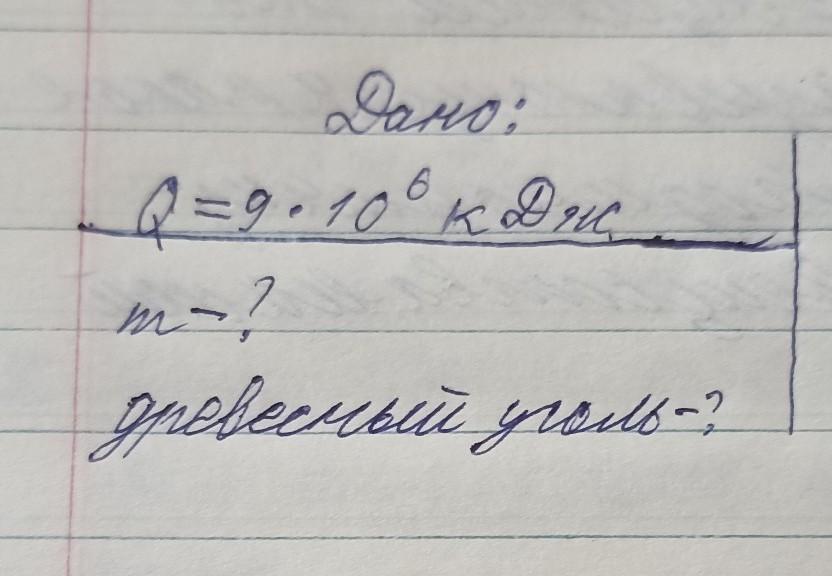 Дано:
Q = 9 · 10⁶ кДж
m - ?
древесный уголь - ?